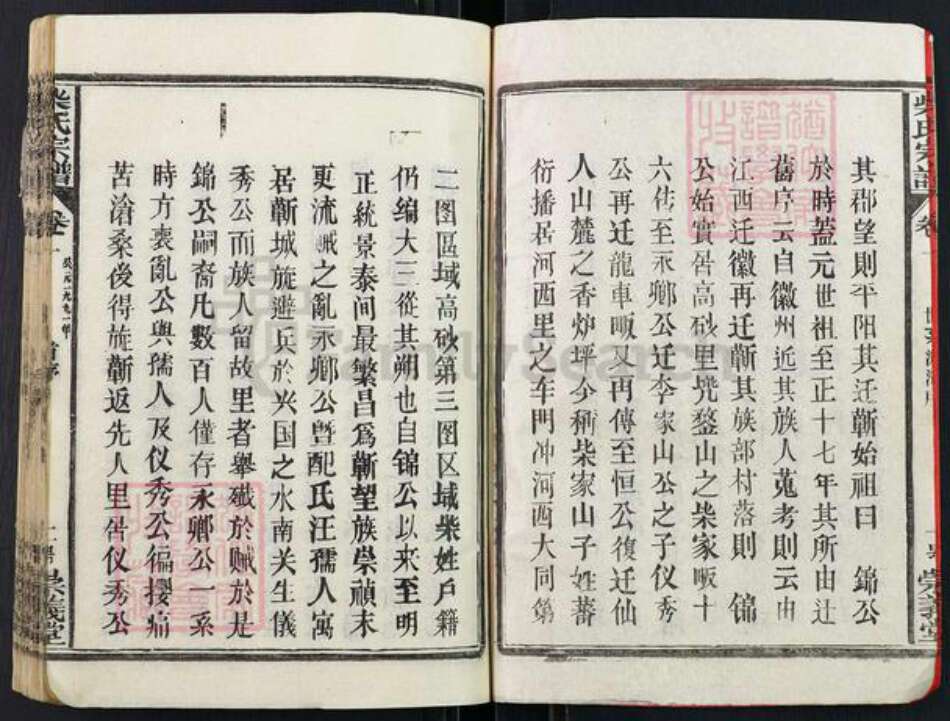 其郡望則平阳其迁蘄始祖曰 錦公
於時蓋元世祖至正十七年其所由迁
舊序云自徽州近其族人蒐考則云由
江西迁徽再迁蘄其族部村落則 锦
公始實居高砂里凭鍪山之柴家畈十
六传至永卿公迁李家山公之子仪秀
公再迁龍車畈又再傳至恒公復迁仙
人山麓之香炉坪今稱柴家山子姓蕃
衍播居河西里之车門冲河西大同第
二图區域高砂第三图区域柴姓户籍
仍编大三從其朔也自锦公以来至明
正統景泰间最繁昌爲蘄望族崇禎末
更流贼之亂永卿公暨配氏汪孺人寓
居蘄城旋避兵於兴国之水南关生儀
秀公而族人留故里者舉殲於贼於是
錦公嗣裔凡數百人僅存永卿公一系
時方衰亂公與孺人及仪秀公徧攖痛
苦滄桑後得旋蘄返先人里居仪秀公
柴氏宗譜
卷一
公元一九九一年
崇義堂
柴氏宗譜
卷一
崇義堂
FamilySearch